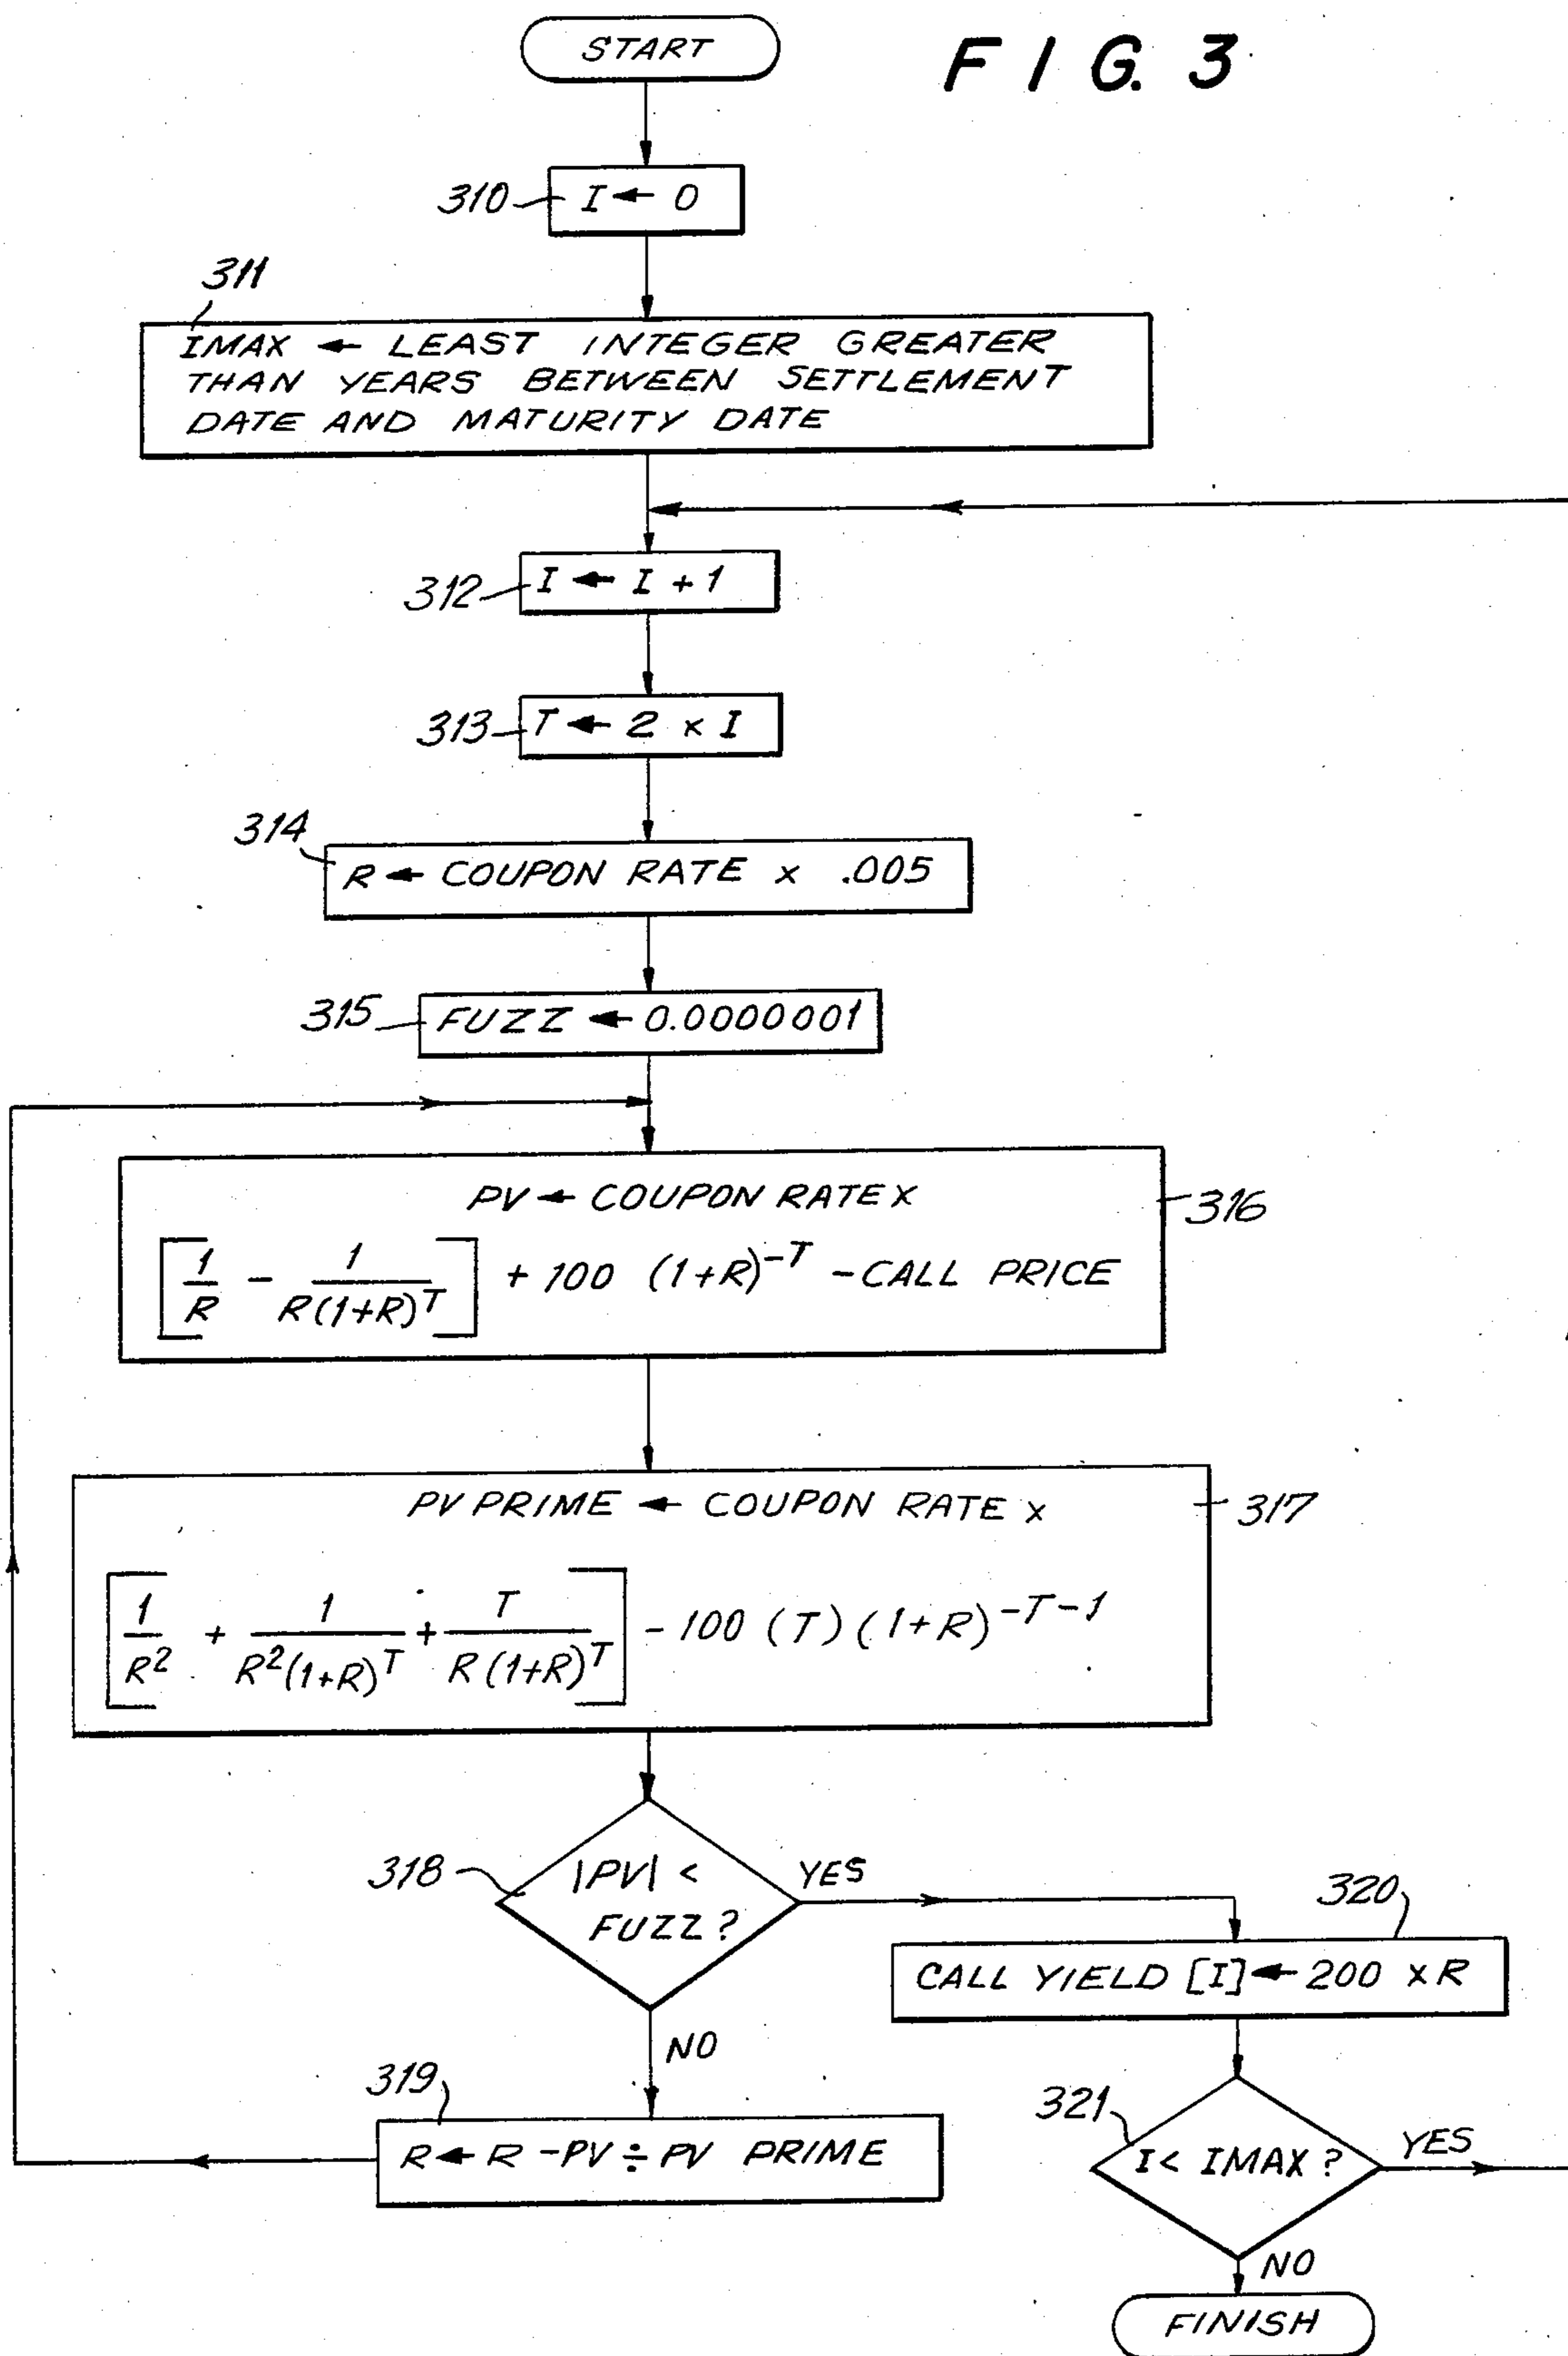 START
FIG. 3
310
I ← 0
311
IMAX ← LEAST INTEGER GREATER
THAN YEARS BETWEEN SETTLEMENT
DATE AND MATURITY DATE
312
I ← I + 1
313
T ← 2 × I
314
R ← COUPON RATE × .005
315
FUZZ ← 0.0000001
PV ← COUPON RATE X
316
[1/R - 1/R(1+R)^T] + 100 (1+R)^-T - CALL PRICE
PV PRIME ← COUPON RATE X
317
[1/R^2 + 1/R^2(1+R)^T + T/R(1+R)^T] - 100 (T)(1+R)^-T-1
318
|PV| <
FUZZ ?
YES
NO
320
CALL YIELD [I] ← 200 × R
319
R ← R - PV ÷ PV PRIME
321
I < IMAX ?
YES
NO
FINISH